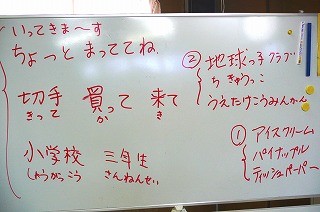 いってきま〜す
ちょっと まっててね.
切手 買って 来て
きって か き
小学校 三年生
しょうがっこう さんねんせい
② 地球っ子クラブ
ちきゅうっこ
うえたけこうみんかん
① アイスクリーム
パイナップル
ティッシュペーパー